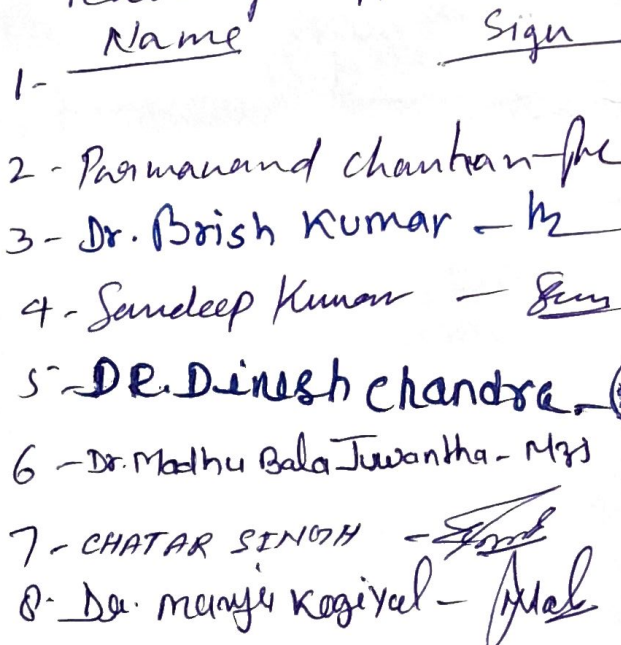 Name Sign
1-
2 - Parmanand chauhan -
3 - Dr. Brish Kumar -
4 - Sandeep Kumar -
5 - DR. Dinesh chandra -
6 - Dr. Madhu Bala Juwantha -
7 - CHATAR SINGH -
8 - Dr. Manju Kogiyal -